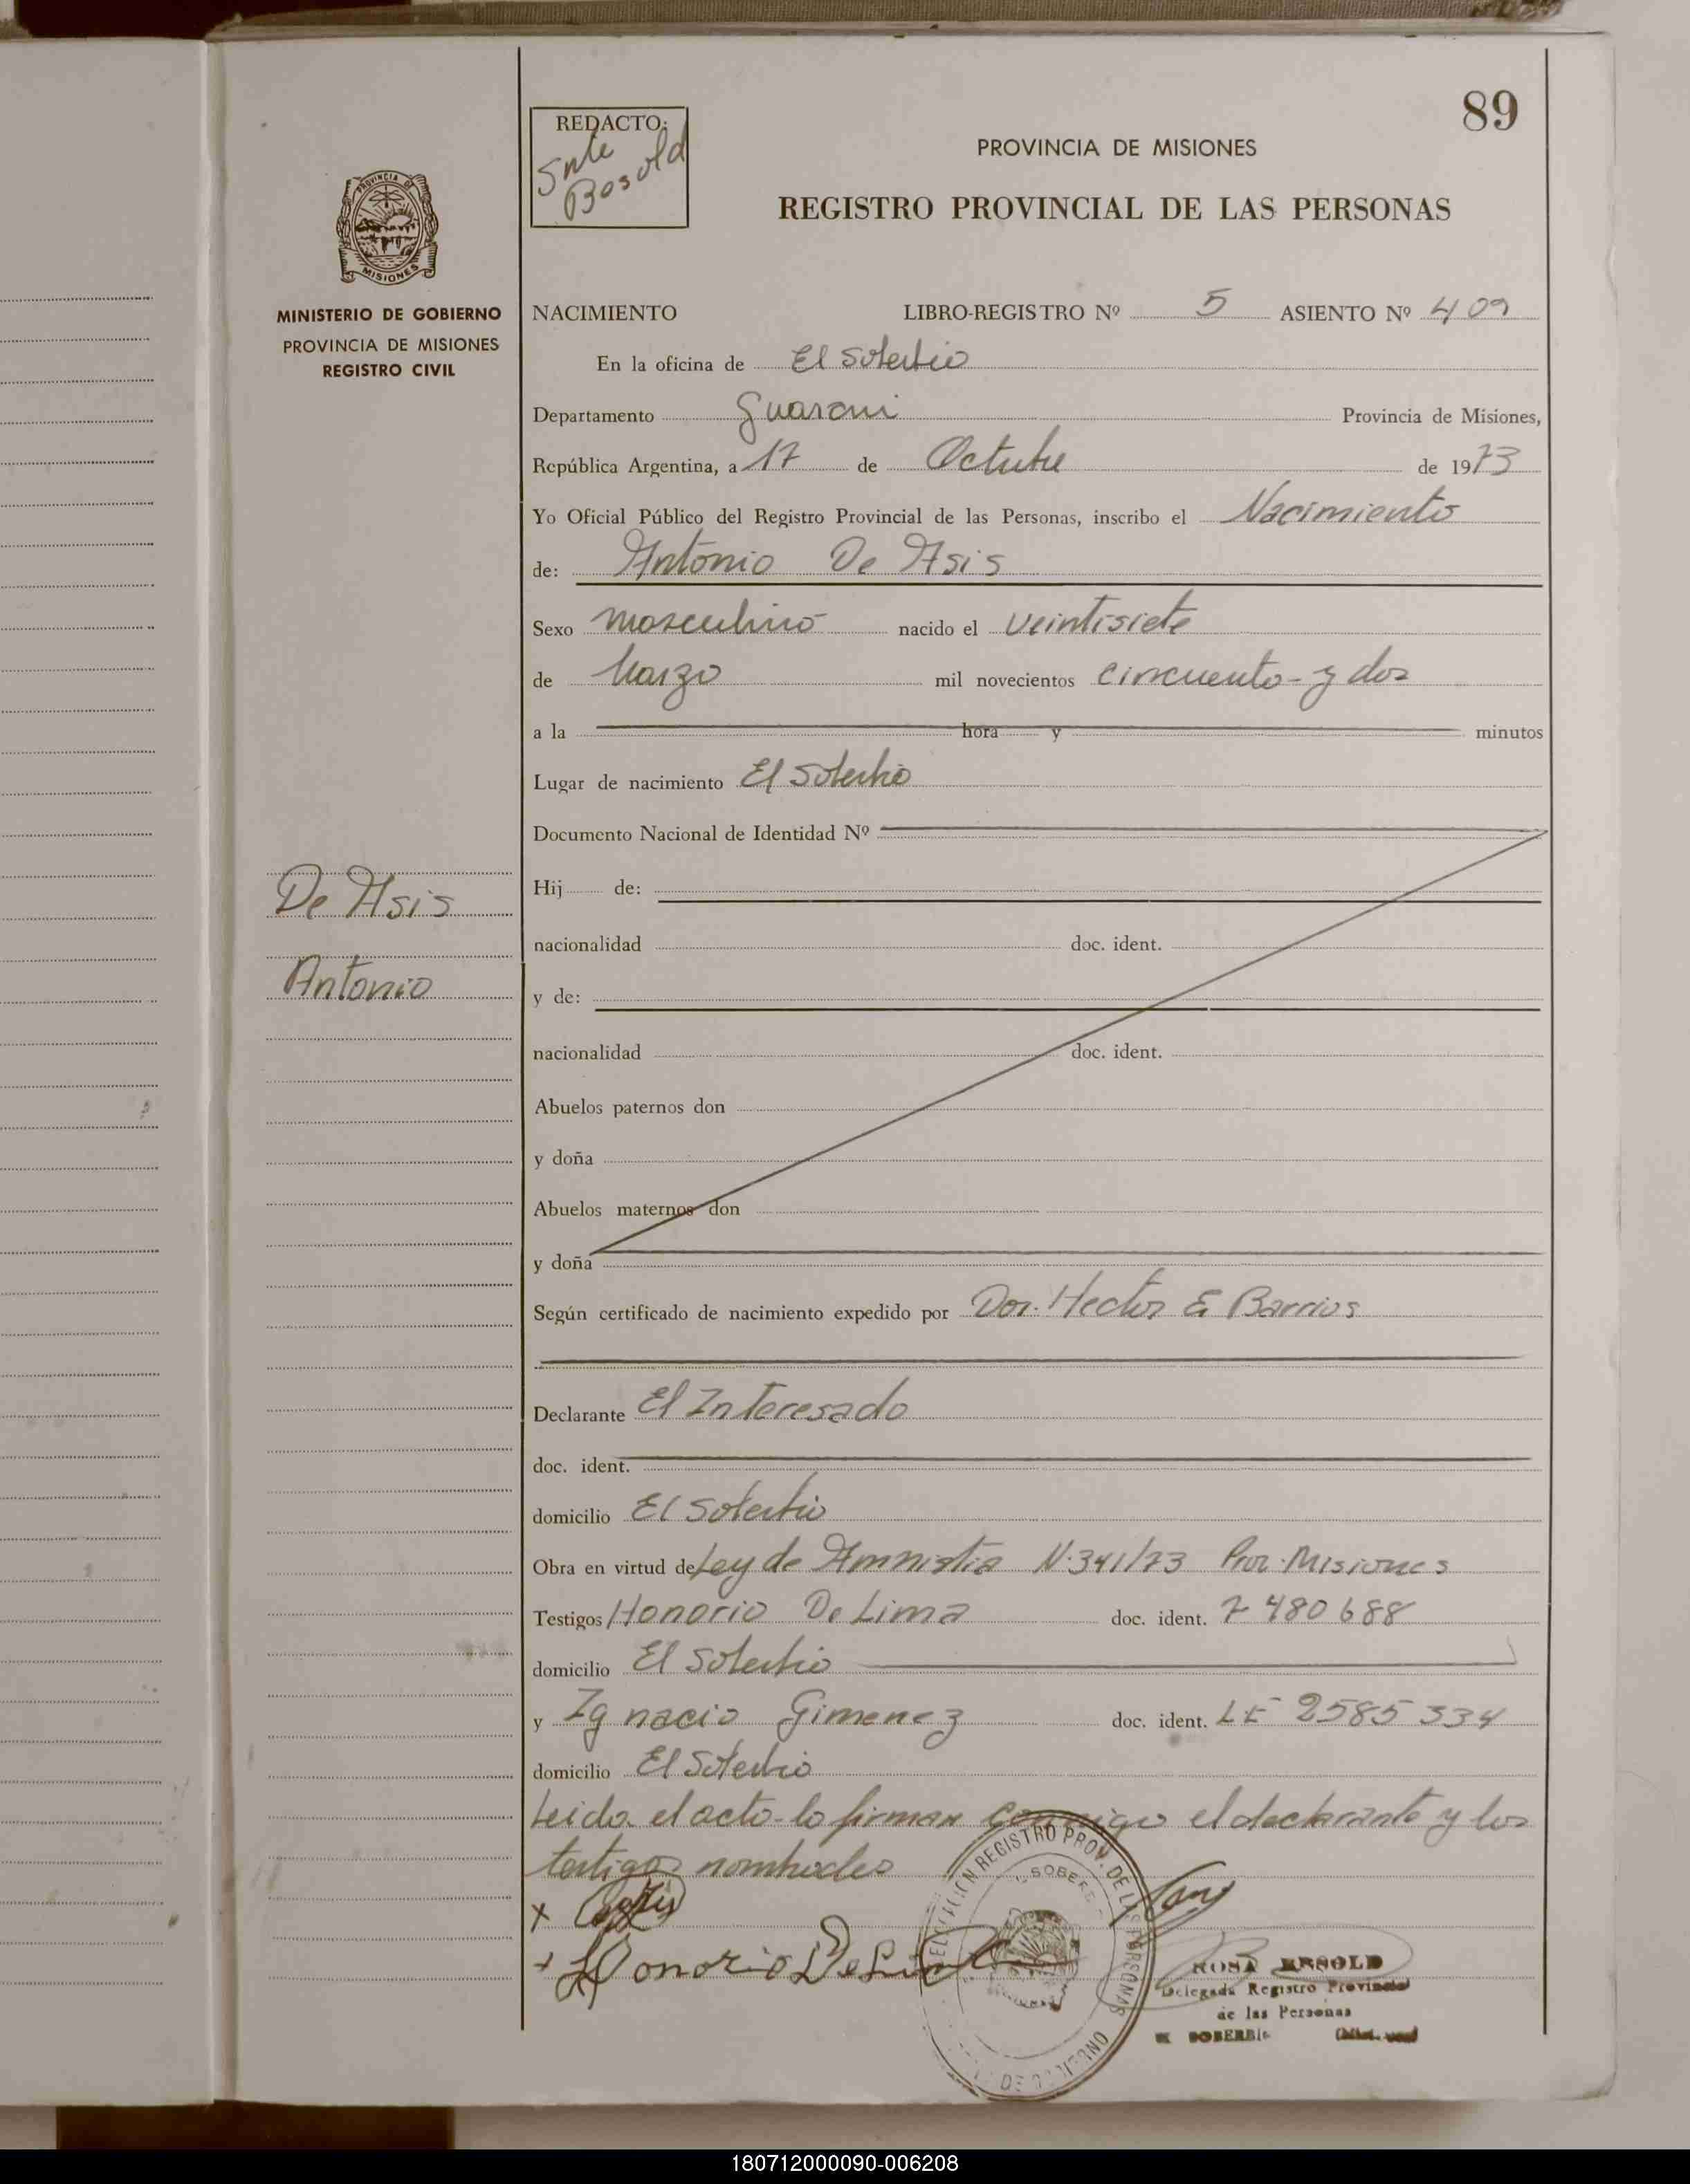 89
REDACTO:
Snte
Bosold
PROVINCIA DE MISIONES
REGISTRO PROVINCIAL DE LAS PERSONAS
PROVINCIA DE
MISIONES
MINISTERIO DE GOBIERNO
PROVINCIA DE MISIONES
REGISTRO CIVIL
NACIMIENTO LIBRO-REGISTRO Nº 5 ASIENTO Nº 409
En la oficina de El Soberbio
Departamento Guarani Provincia de Misiones,
República Argentina, a 17 de Octubre de 1973
Yo Oficial Público del Registro Provincial de las Personas, inscribo el Nacimiento
de: Antonio De Asis
Sexo Masculino nacido el veintisiete
de Marzo mil novecientos cincuenta y dos
a la hora y minutos
Lugar de nacimiento El Soberbio
Documento Nacional de Identidad Nº
De Asis
Antonio
Hij de:
nacionalidad doc. ident.
y de:
nacionalidad doc. ident.
Abuelos paternos don
y doña
Abuelos maternos don
y doña
Según certificado de nacimiento expedido por Dor. Hector E Barrios
Declarante El Interesado
doc. ident.
domicilio El Soberbio
Obra en virtud de Ley de Amnistia N.341/73 Prov. Misiones
Testigos Honorio De Lima doc. ident. 7 480 688
domicilio El Soberbio
y Ignacio Gimenez doc. ident. LE 2585 334
domicilio El Soberbio
Leida el acto lo firman conmigo el declarante y los
testigos nombrados
x
+ Honorio De Lima
REGISTRO PROV. DE LAS PERSONAS
ROSA
Delegada Registro Provincial
de las Personas
SOBERBIO
180712000090-006208